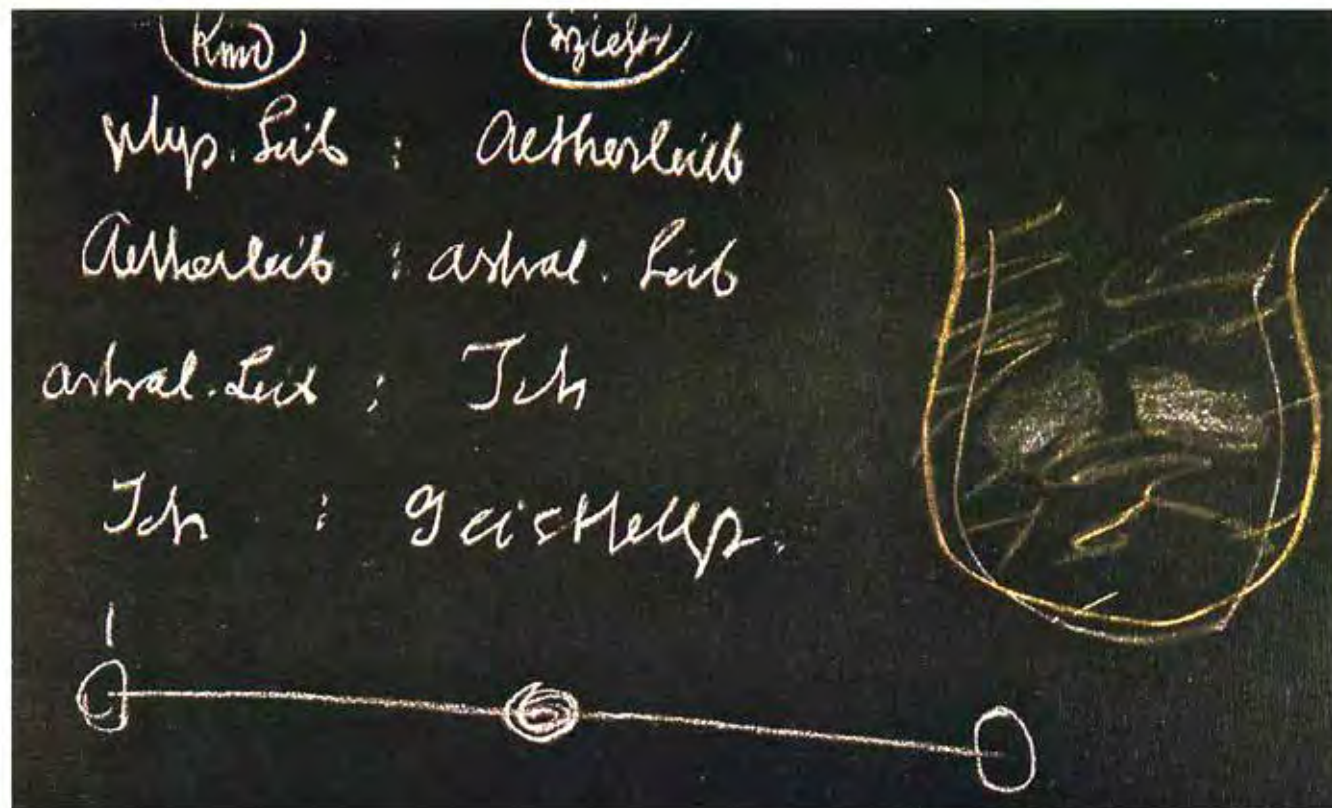 Kind Erzieher
phys. Leib : Aetherleib
Aetherleib : astral. Leib
astral. Leib : Ich
Ich : Geistselbst.